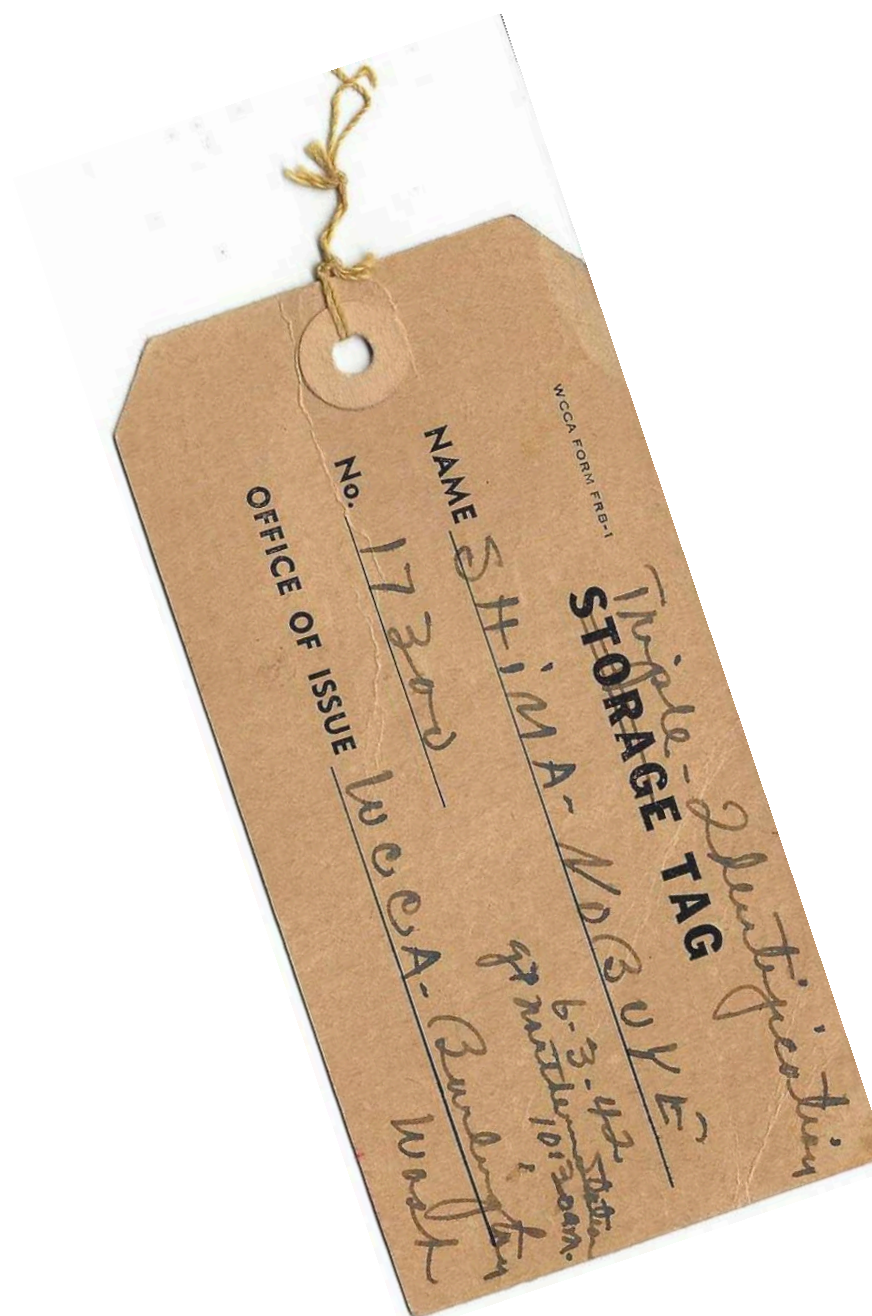 WCCA FORM FRB-1
Triple - Identification
STORAGE TAG
NAME SHIMA - NOBUYE
6-3-42
gt northern Station
10:30 am.
No. 17300
OFFICE OF ISSUE WCCA - Burlington
Wash